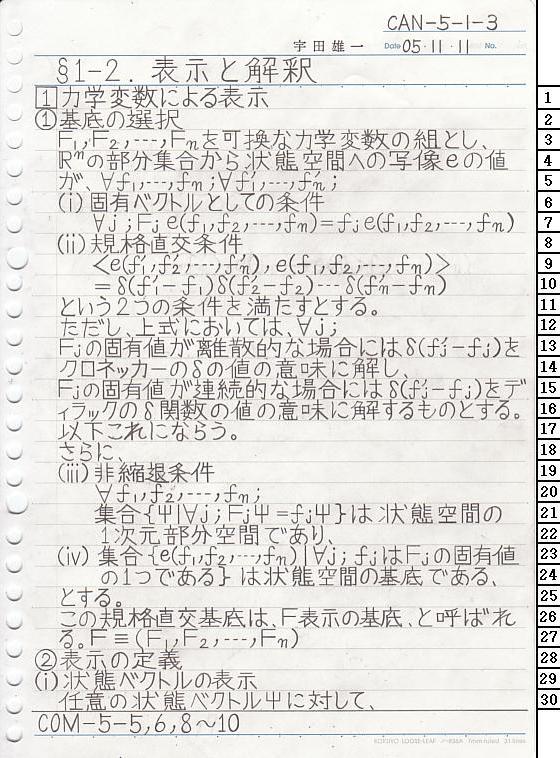 CAN-5-1-3
宇田雄一 Date 05・11・11 No.
§1-2. 表示と解釈
1 力学変数による表示 1
① 基底の選択 2
F₁,F₂,---,Fₙを可換な力学変数の組とし、 3
ℝⁿの部分集合から状態空間への写像eの値 4
が、∀f₁,---,fₙ;∀f₁′,---,fₙ′; 5
(i) 固有ベクトルとしての条件 6
∀j;Fⱼe(f₁,f₂,---,fₙ)=fⱼe(f₁,f₂,---,fₙ) 7
(ii) 規格直交条件 8
<e(f₁′,f₂′,---,fₙ′), e(f₁,f₂,---,fₙ)> 9
=δ(f₁′-f₁)δ(f₂′-f₂)---δ(fₙ′-fₙ) 10
という2つの条件を満たすとする。 11
ただし、上式においては、∀j; 12
Fⱼの固有値が離散的な場合にはδ(fⱼ′-fⱼ)を 13
クロネッカーのδの値の意味に解し、 14
Fⱼの固有値が連続的な場合にはδ(fⱼ′-fⱼ)をデ 15
ィラックのδ関数の値の意味に解するものとする。 16
以下これにならう。 17
さらに、 18
(iii) 非縮退条件 19
∀f₁,f₂,---,fₙ; 20
集合{Ψ|∀j;FⱼΨ=fⱼΨ}は状態空間の 21
1次元部分空間であり、 22
(iv) 集合{e(f₁,f₂,---,fₙ)|∀j; fⱼはFⱼの固有値 23
の1つである}は状態空間の基底である、 24
とする。 25
この規格直交基底は、F表示の基底、と呼ばれ 26
る。F≡(F₁,F₂,---,Fₙ) 27
② 表示の定義 28
(i) 状態ベクトルの表示 29
任意の状態ベクトルΨに対して、 30
COM-5-5,6,8〜10
KOKUYO LOOSE-LEAF ノ-836A 7mm ruled 31 lines